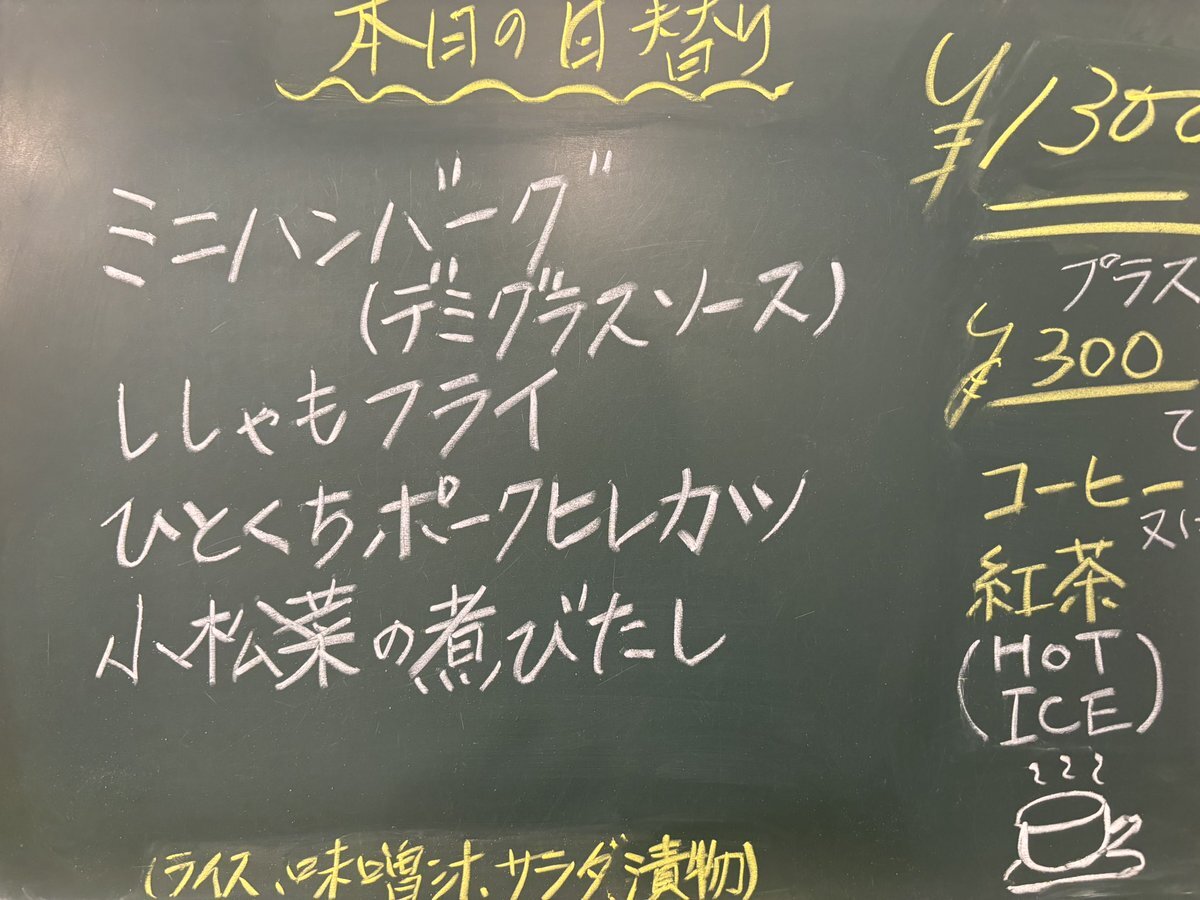 本日の日替り
ミニハンバーグ
(デミグラスソース)
ししゃもフライ
ひとくちポークヒレカツ
小松菜の煮びたし
(ライス、味噌汁、サラダ、漬物)
¥1300
プラス
¥300
で
コーヒー
又は
紅茶
(HOT
ICE)